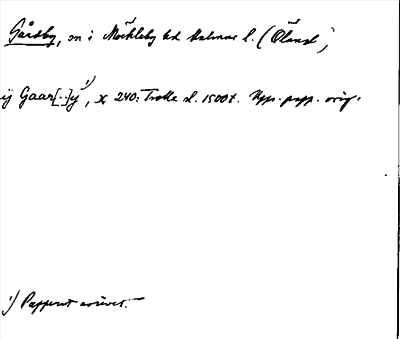 Gårdby, sn i Möckleby hd Kalmar l. (Öland)
ij Gaar[..]y 1), x 240: Trolle sl. 1500t. Upps. papp. orig.
1) Papperet avrivet.